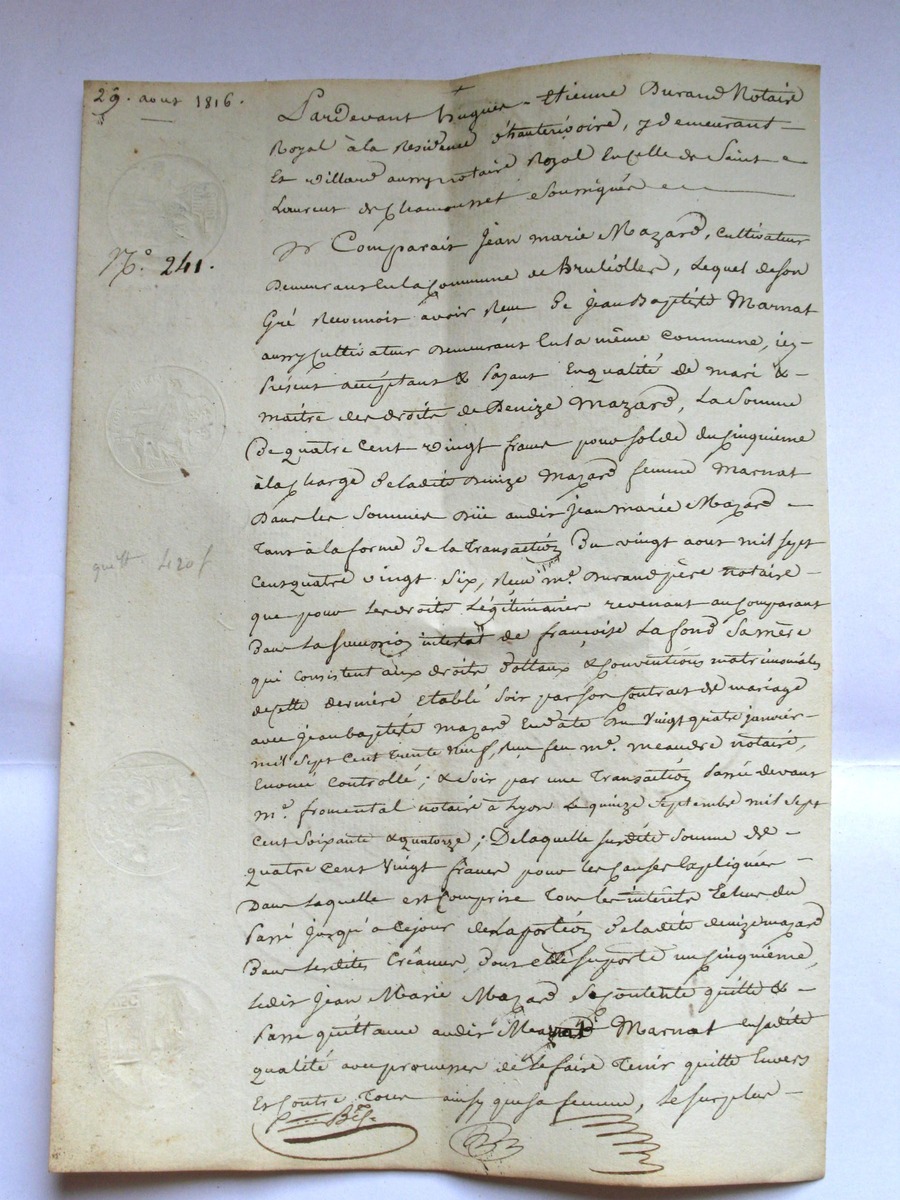 29. aout 1816.
N.° 241.
quitt. 420 f
Pardevant hugues-Etienne Durand Notaire
Royal à la Residence d'hauterivoire, y demeurant
Et Villard aussy notaire Royal En celle de Saint
Laurent de Chamousset Soussignés
Comparait Jean marie Mazard, Cultivateur
Demeurant En la Commune de Brulliolles, Lequel de son
Gré Reconnoit avoir Recu de jean Baptiste Marnat
aussy Cultivateur demeurant En la même Commune, icy
présent acceptant & payant En qualité de mari &
maitre des droits de Denize Mazard, La Somme
De quatre Cent Vingt francs pour solde du Cinquième
à la Charge de ladite Denize Mazard femme Marnat
Dans les Sommes düe audit jean marie Mazard
Tant à la forme de la Transaction du vingt aout mil sept
Cent quatre vingt Six, Recu m.e Durand père notaire
que pour Les droits Légitimaires revenant au Comparant
Dans La succession intestat de françoise Lafond Sa mère
qui Consistent aux droits dottaux & Conventions matrimoniales
de cette dernière Etablé soit par son Contrat de mariage
avec jean baptiste mazard En date du Vingt quatre janvier
mil Sept Cent trente Neuf, Recu feu m.e meandre notaire,
Controllé; & Soit par une Transaction Passée devant
m.e fromental notaire à Lyon Le quinze Septembre mil Sept
Cent Soixante & quatorze; De laquelle susdite Somme de
quatre Cent Vingt francs pour les Causes Expliquées
Dans Laquelle est Comprise Tous les intérêts Echus du
Passé jusqu'à Cejour de La portion de ladite denize mazard
Dans Lesdites Créances, dont elle supporte un Cinquième,
Ledit Jean Marie Mazard se Contente quitte &
Passe quittance audit Marnat en sadite
qualité avec promesse de Le faire Tenir quitte Envers
Et Contre Tous ainsy que sa femme, Le surplus